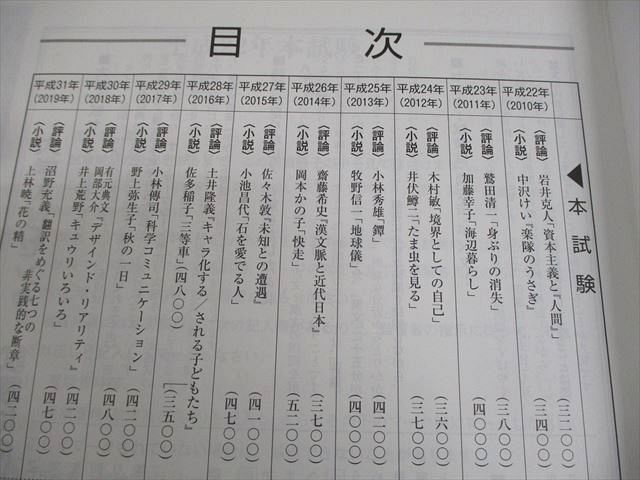 目次
▲本試験
平成22年
(2010年)
〈評論〉 岩井克人「資本主義と『人間』」 (三二〇〇)
〈小説〉 中沢けい『楽隊のうさぎ』 (三四〇〇)
平成23年
(2011年)
〈評論〉 鷲田清一「身ぶりの消失」 (三八〇〇)
〈小説〉 加藤幸子「海辺暮らし」 (四〇〇〇)
平成24年
(2012年)
〈評論〉 木村敏「境界としての自己」 (三六〇〇)
〈小説〉 井伏鱒二「たま虫を見る」 (三七〇〇)
平成25年
(2013年)
〈評論〉 小林秀雄「鐔」 (四二〇〇)
〈小説〉 牧野信一「地球儀」 (四〇〇〇)
平成26年
(2014年)
〈評論〉 齋藤希史『漢文脈と近代日本』 (三七〇〇)
〈小説〉 岡本かの子「快走」 (五二〇〇)
平成27年
(2015年)
〈評論〉 佐々木敦『未知との遭遇』 (四一〇〇)
〈小説〉 小池昌代「石を愛でる人」 (四七〇〇)
平成28年
(2016年)
〈評論〉 土井隆義『キャラ化する/される子どもたち』 (三五〇〇)
〈小説〉 佐多稲子「三等車」 (四八〇〇)
平成29年
(2017年)
〈評論〉 小林傳司「科学コミュニケーション」 (四二〇〇)
〈小説〉 野上弥生子「秋の一日」 (四八〇〇)
平成30年
(2018年)
〈評論〉 有元典文・岡部大介『デザインド・リアリティ』 (四二〇〇)
〈小説〉 井上荒野「キュウリいろいろ」 (四七〇〇)
平成31年
(2019年)
〈評論〉 沼野充義「翻訳をめぐる七つの
非実践的な断章」 (四二〇〇)
〈小説〉 上林暁「花の精」